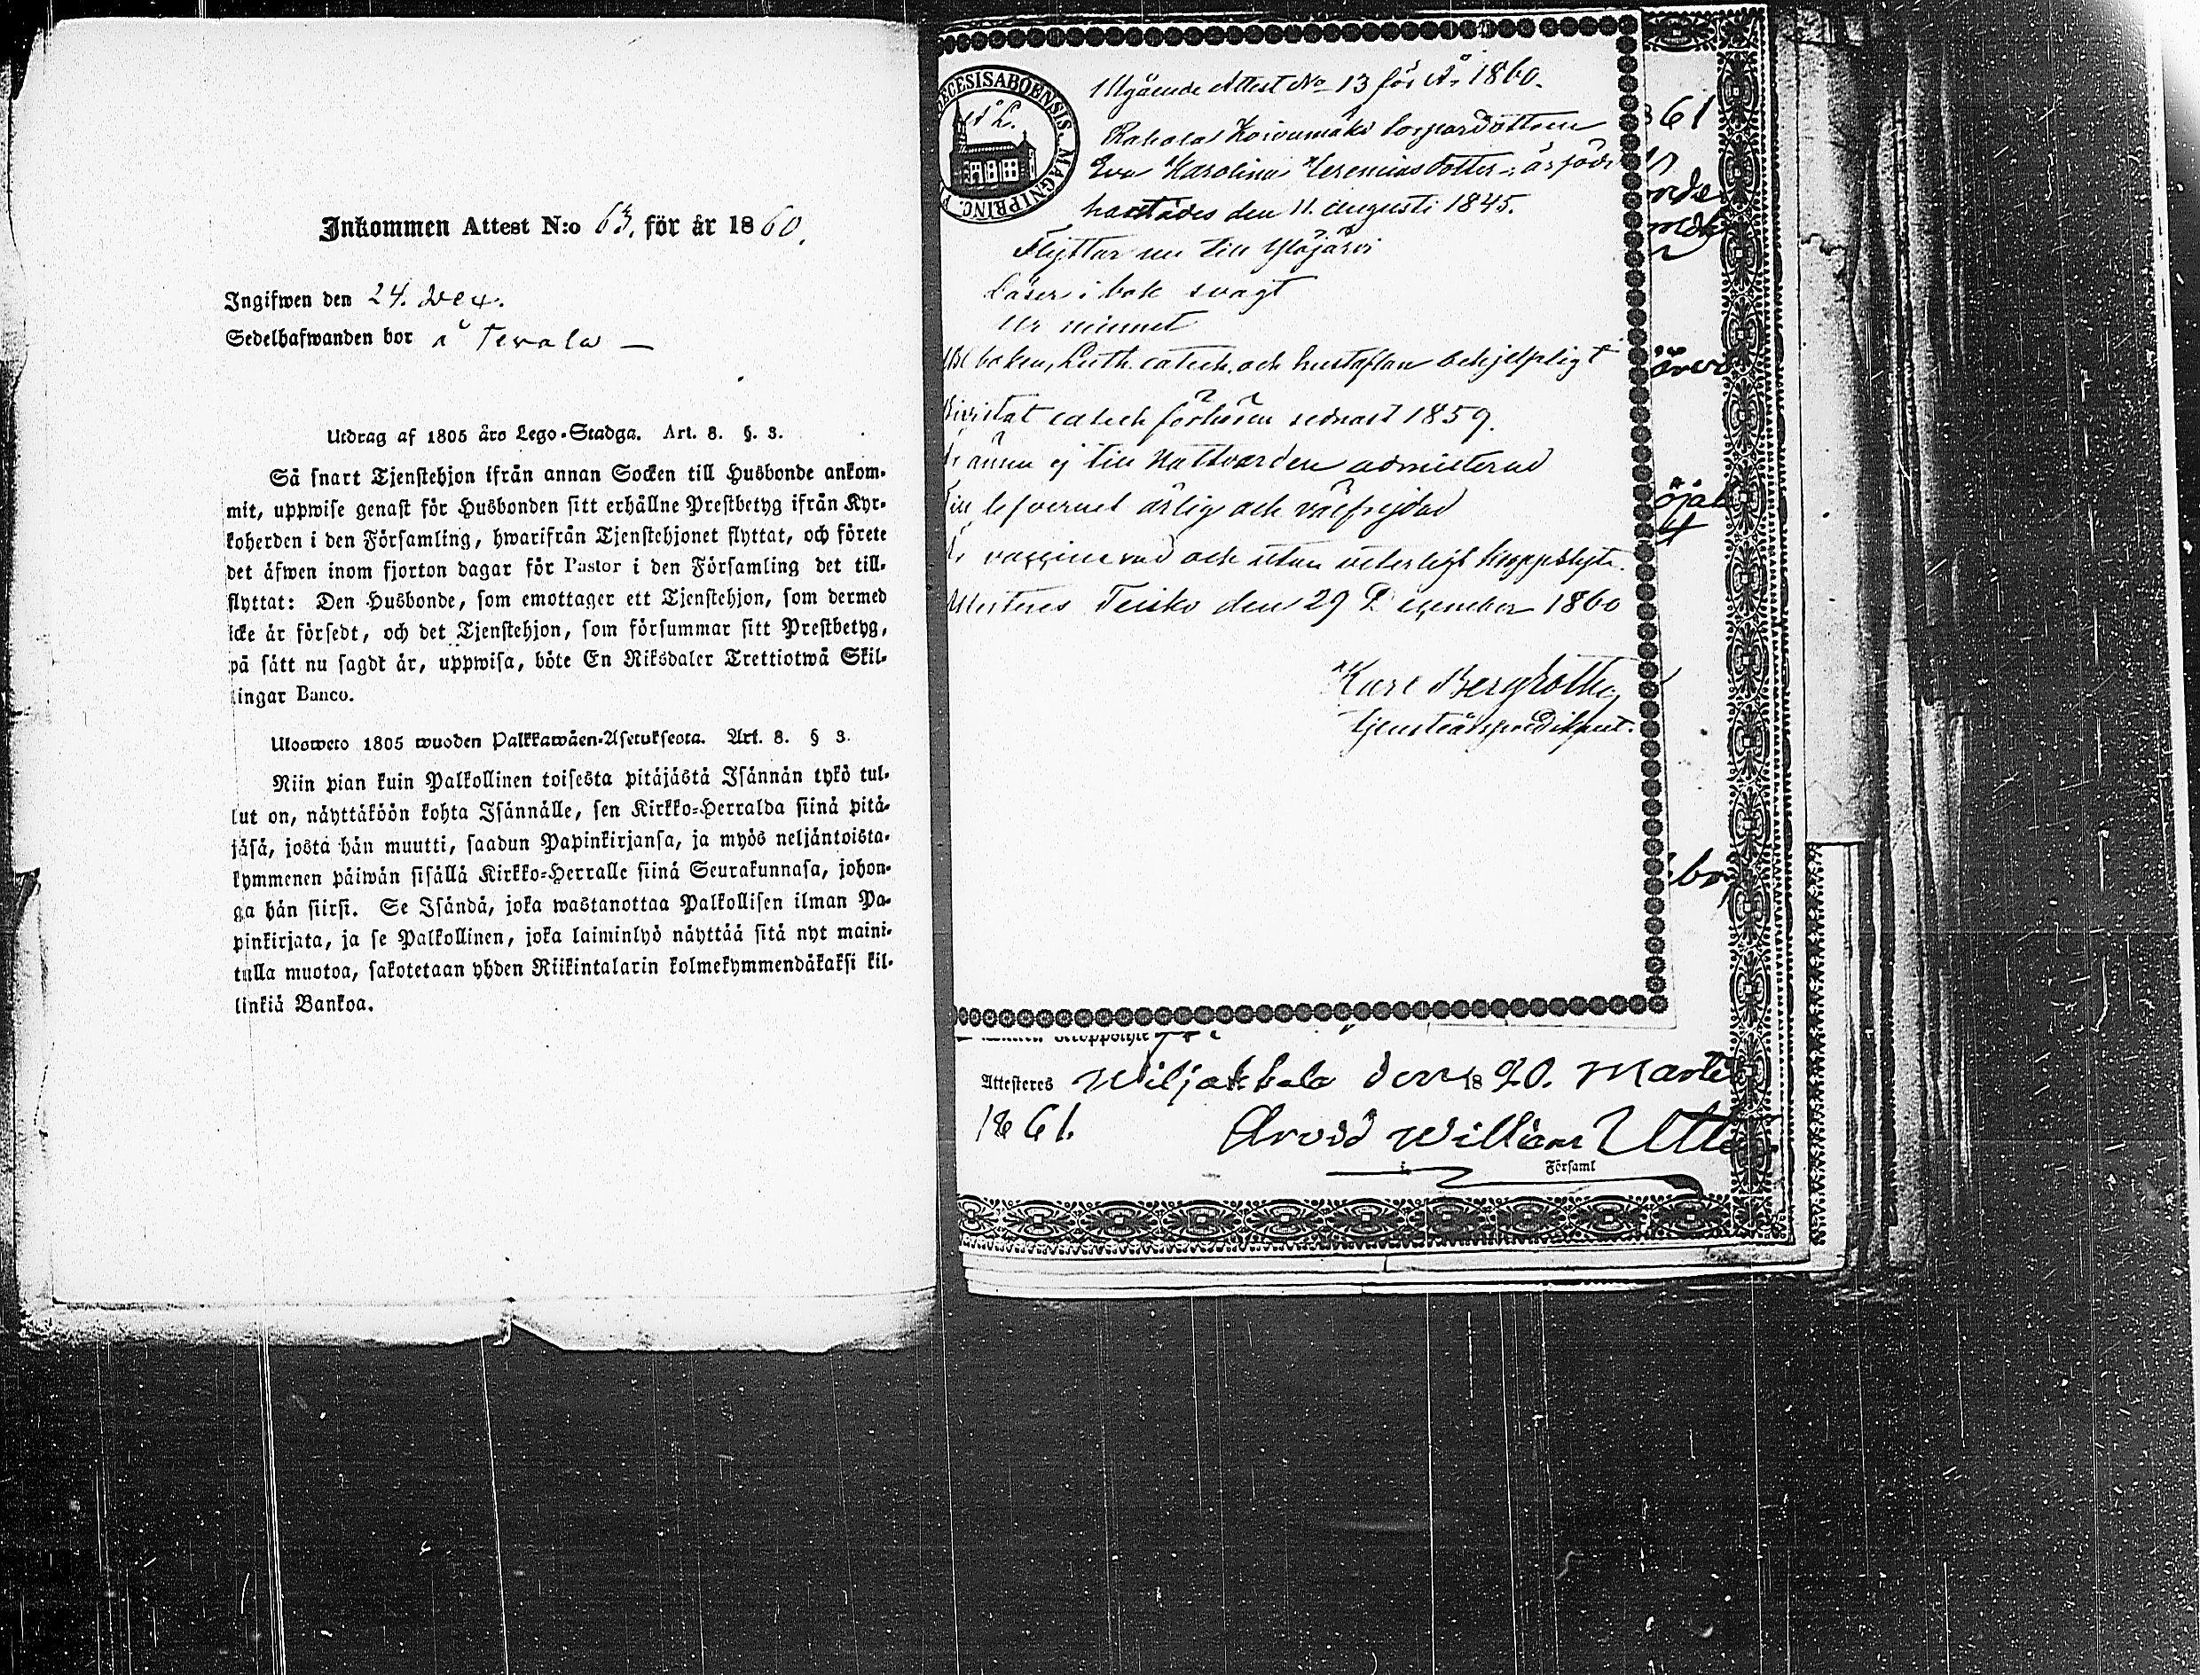 Inkommen Attest N:o 63. för år 1860.
Ingifwen den 24. Dec.
Sedelhafwanden bor å Terala —
Utdrag af 1805 års Lego-Stadga. Art. 8. §. 3.
Så snart Tjenstehjon ifrån annan Socken till Husbonde ankom-
mit, uppwise genast för Husbonden sitt erhållne Prestbetyg ifrån Kyr-
koherden i den Församling, hwarifrån Tjenstehjonet flyttat, och förete
det äfwen inom fjorton dagar för Pastor i den Församling det till-
flyttat: Den Husbonde, som emottager ett Tjenstehjon, som dermed
icke är försedt, och det Tjenstehjon, som försummar sitt Prestbetyg,
på sätt nu sagdt är, uppwisa, böte En Riksdaler Trettiotwå Skil-
lingar Banco.
Ulosweto 1805 wuoden Palkkawäen-Asetuksesta. Art. 8. § 3.
Niin pian kuin Palkollinen toisesta pitäjästä Isännän tykö tul-
lut on, näyttäköön kohta Isännälle, sen Kirkko-Herralda siinä pitä-
jäsä, josta hän muutti, saadun Papinkirjansa, ja myös neljäntoista-
kymmenen päiwän sisällä Kirkko-Herralle siinä Seurakunnasa, johon-
ga hän siirsi. Se Isändä, joka wastanottaa Palkollisen ilman Pa-
pinkirjata, ja se Palkollinen, joka laiminlyö näyttää sitä nyt maini-
tulla muotoa, sakotetaan yhden Riikintalarin kolmekymmendäkaksi kil-
linkiä Bankoa.
DIOECESIS ABOENSIS. MAGNI PRINC. F
Utgående Attest No 13 för År 1860.
Rahola Koivumäki torpardottren
Eva Karolina Jeremiasdotter, är född
härstädes den 11. Augusti 1845.
Flyttar nu till Ylöjärvi
Läser i bok svagt
Ur minnet
Abc boken, Luth. catech. och hustaflan behjelpligt
Bivistat catech förhören sednast 1859.
Är ännu ej till Nattvarden admitterad
Till lefvernet ärlig och välfrejdad
Är vaccinerad och utan veterligt kroppslyte.
Attesteras Teisko den 29 December 1860
Karl Bergroth
tjensteårspredikant.
61
öjak
Attesteres Wiljakkala den 18 20. Martii
1861. Arvid Willian
Församl